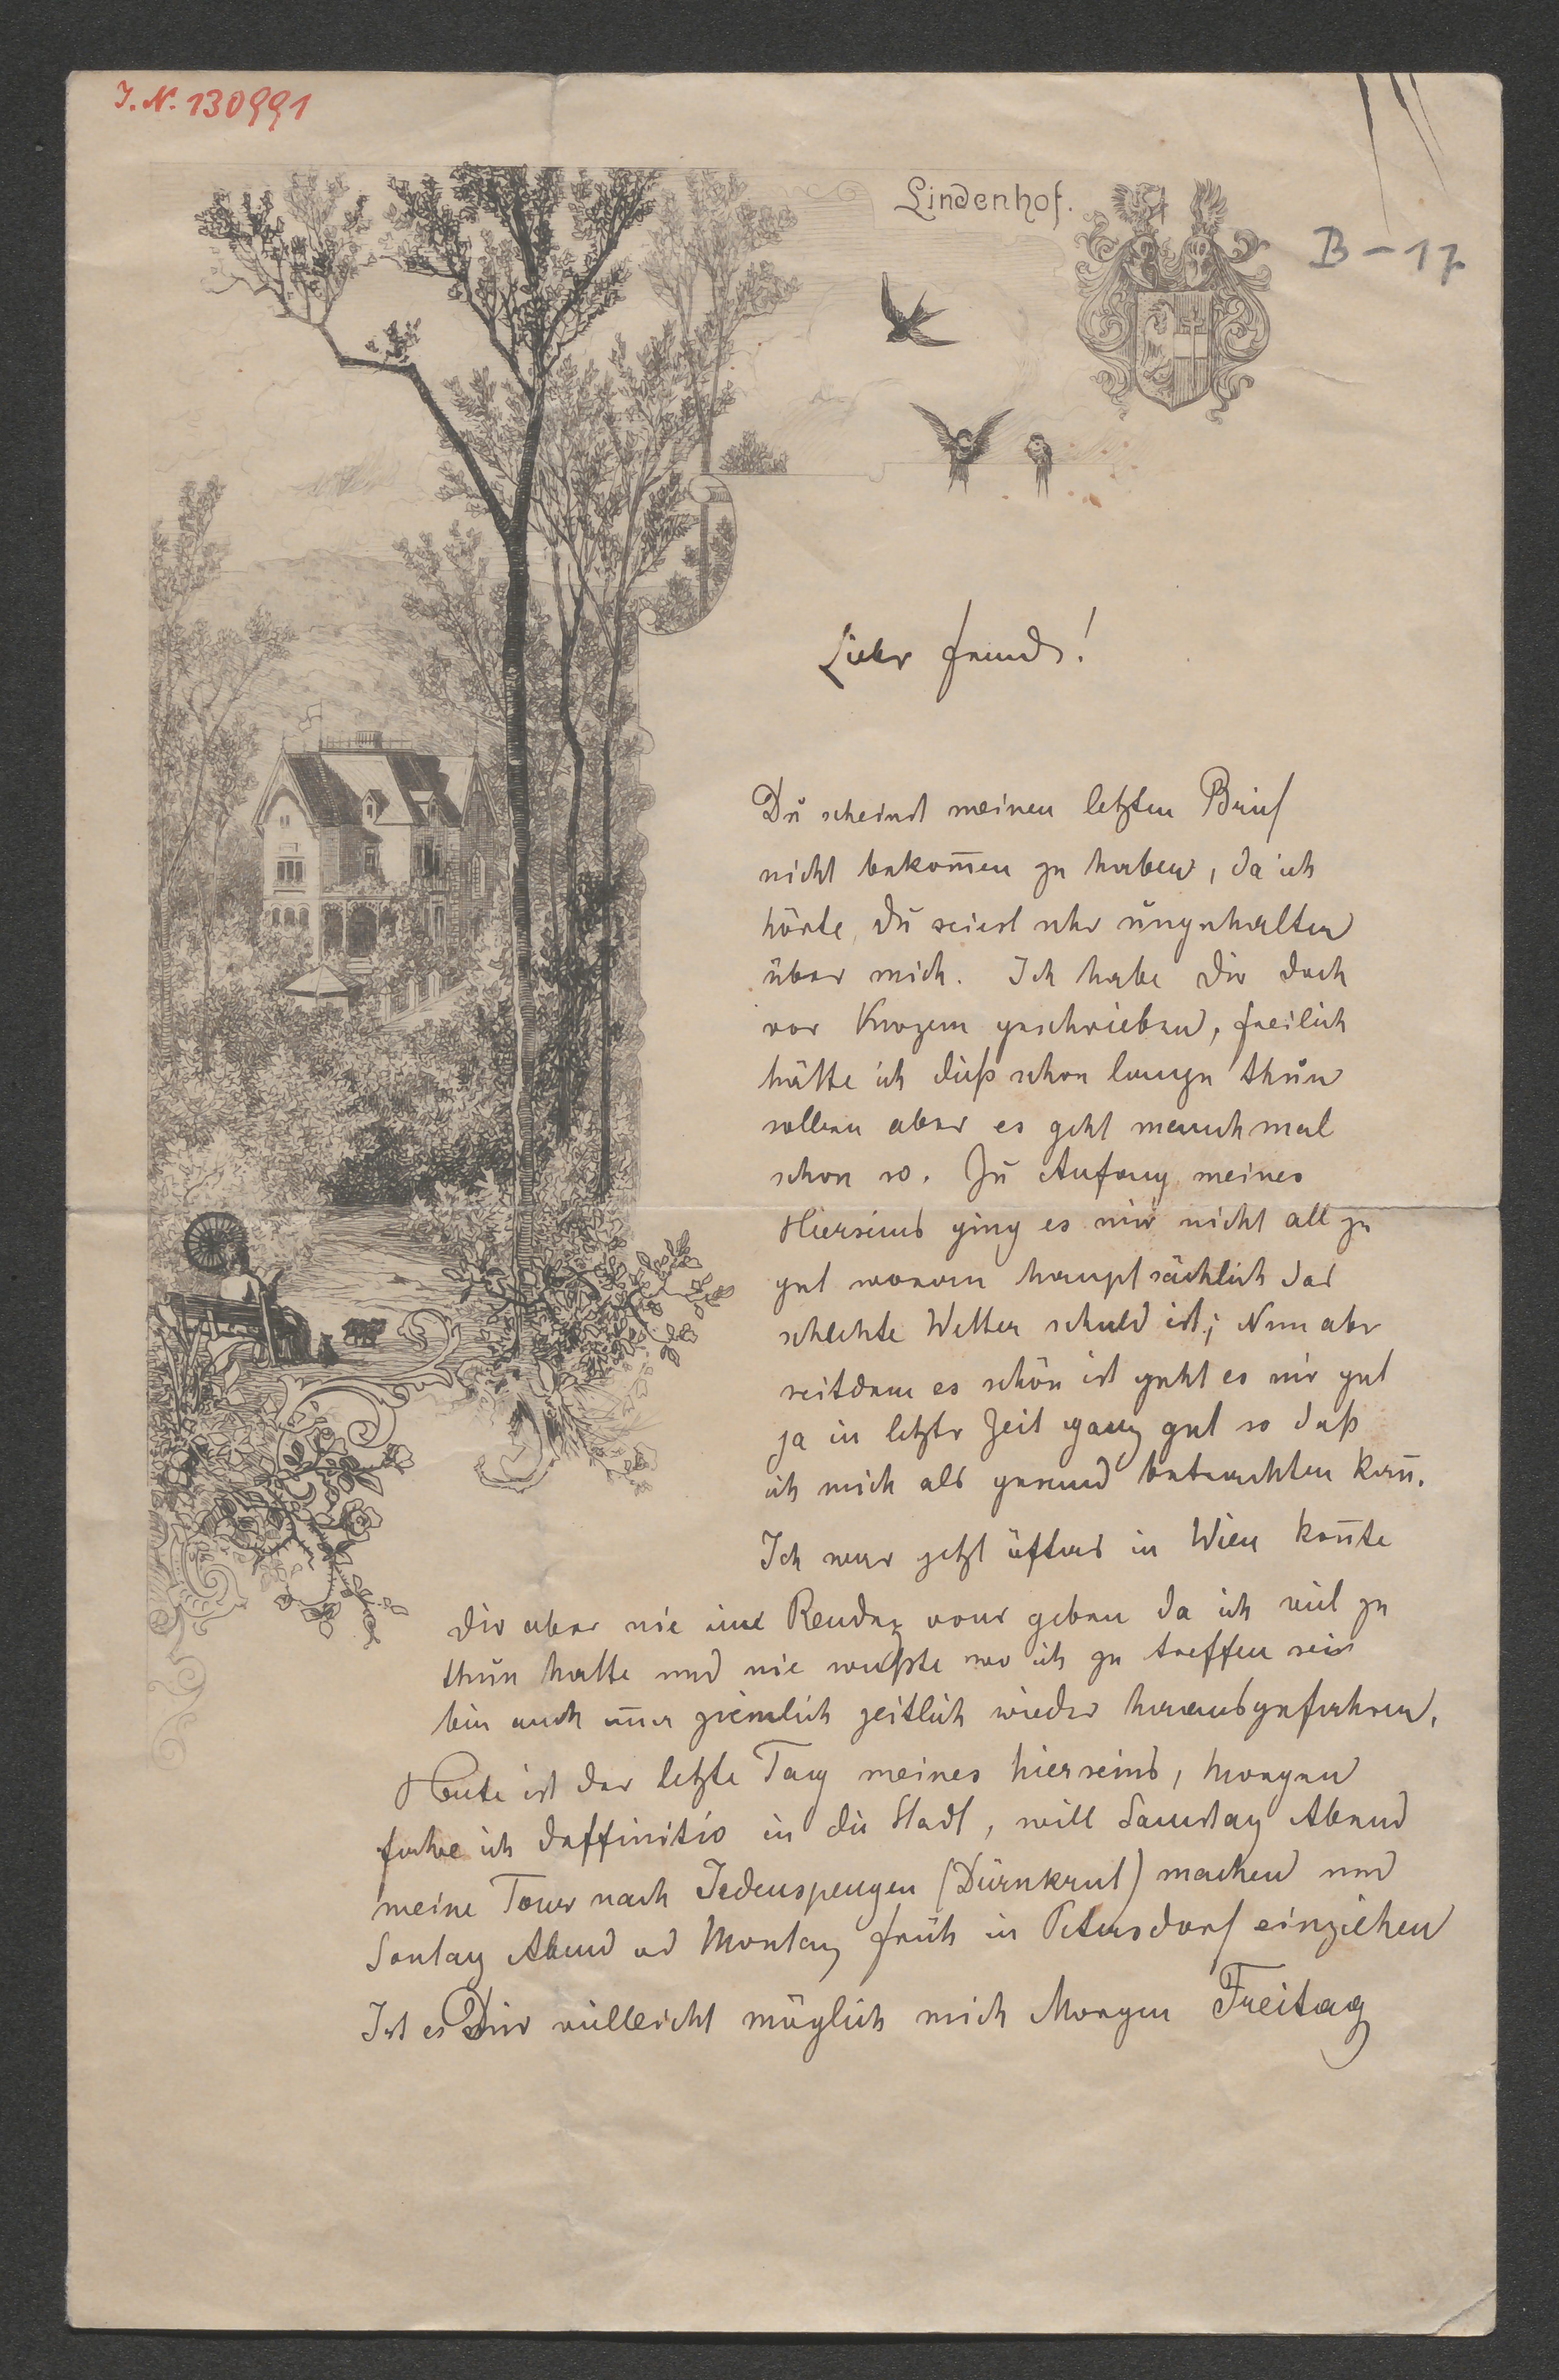 I. N. 130991
Lindenhof.
B-17
Lieber Freund!
Du scheinst meinen letzten Brief
nicht bekom̄en zu haben, da ich
hörte, Du seiest sehr ungehalten
über mich. Ich habe Dir doch
vor Kurzem geschrieben, freilich
hätte ich dieß schon lange thun
sollen aber es geht manchmal
schon so. Zu Anfang meines
Hierseins ging es mir nicht all zu
gut woran hauptsächlich das
schlechte Wetter schuld ist; Nun aber
seitdem es schön ist geht es mir gut
ja in letzter Zeit ganz gut so daß
ich mich als gesund betrachten kan̄.
Ich war jetzt öfters in Wien kon̄te
Dir aber nie ein Rendez vous geben da ich viel zu
thun hatte und nie wußte wo ich zu treffen sei
bin auch im̄er ziemlich zeitlich wieder herausgefahren.
Heute ist der letzte Tag meines hierseins, morgen
fahre ich deffinitiv in die Stadt, will Samstag Abend
meine Tour nach Jedenspeugen (Dürnkrut) machen und
Sontag Abend od Montag früh in Petersdorf einziehen
Ist es Dir villeicht möglich mich Morgen Freitag